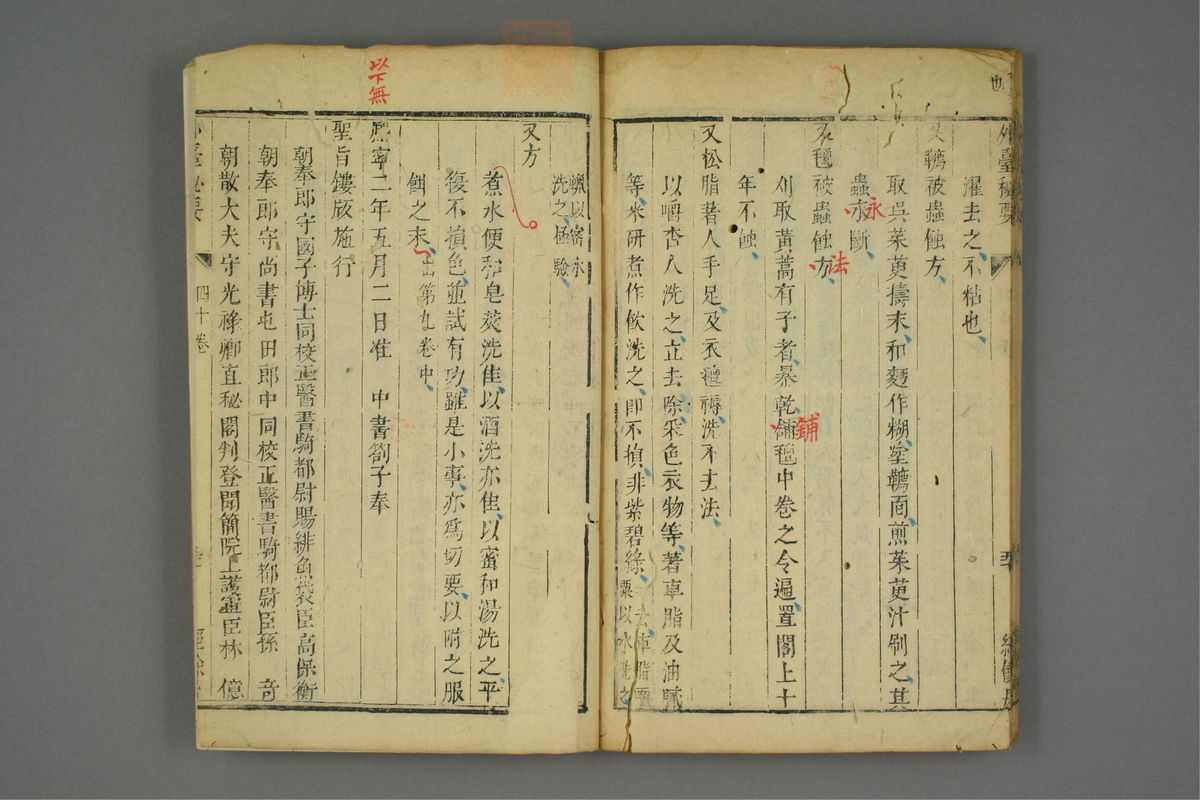 也
外臺秘要
濯去之、不粘也、
又韉被蟲蝕方、
取吳茱萸擣末、和麵作糊、塗韉面、煎茱萸汁刷之、其
蟲永斷、
永
又氊被蟲蝕方、
法
刈取黃蒿有子者、暴乾、鋪氊中卷之、令遍、置閣上十
鋪
年不蝕、
又松脂著人手足、及衣氊褥、洗不去法、
以嚼杏人洗之、立去、除采色衣物等、著車脂及油膩
等、米研煮作飲洗之、即不損、非紫碧綠、
粟以水洗之
蠟以密水
洗之、極驗、
又方
煮水便和皂莢洗佳、以酒洗亦佳、以蜜和湯洗之、平
復不損色、並試有功、雖是小事、亦爲切要、以附之服
餌之末、出第九卷中、
以下無
熙寧二年五月二日准 中書劄子奉
聖旨鏤版施行
朝奉郎守國子博士同校正醫書騎都尉賜緋魚袋臣高保衡
朝奉郎守尚書屯田郎中同校正醫書騎都尉臣孫 奇
朝散大夫守光祿卿直秘閣判登聞簡院上護軍臣林 億
臺秘要
四十卷